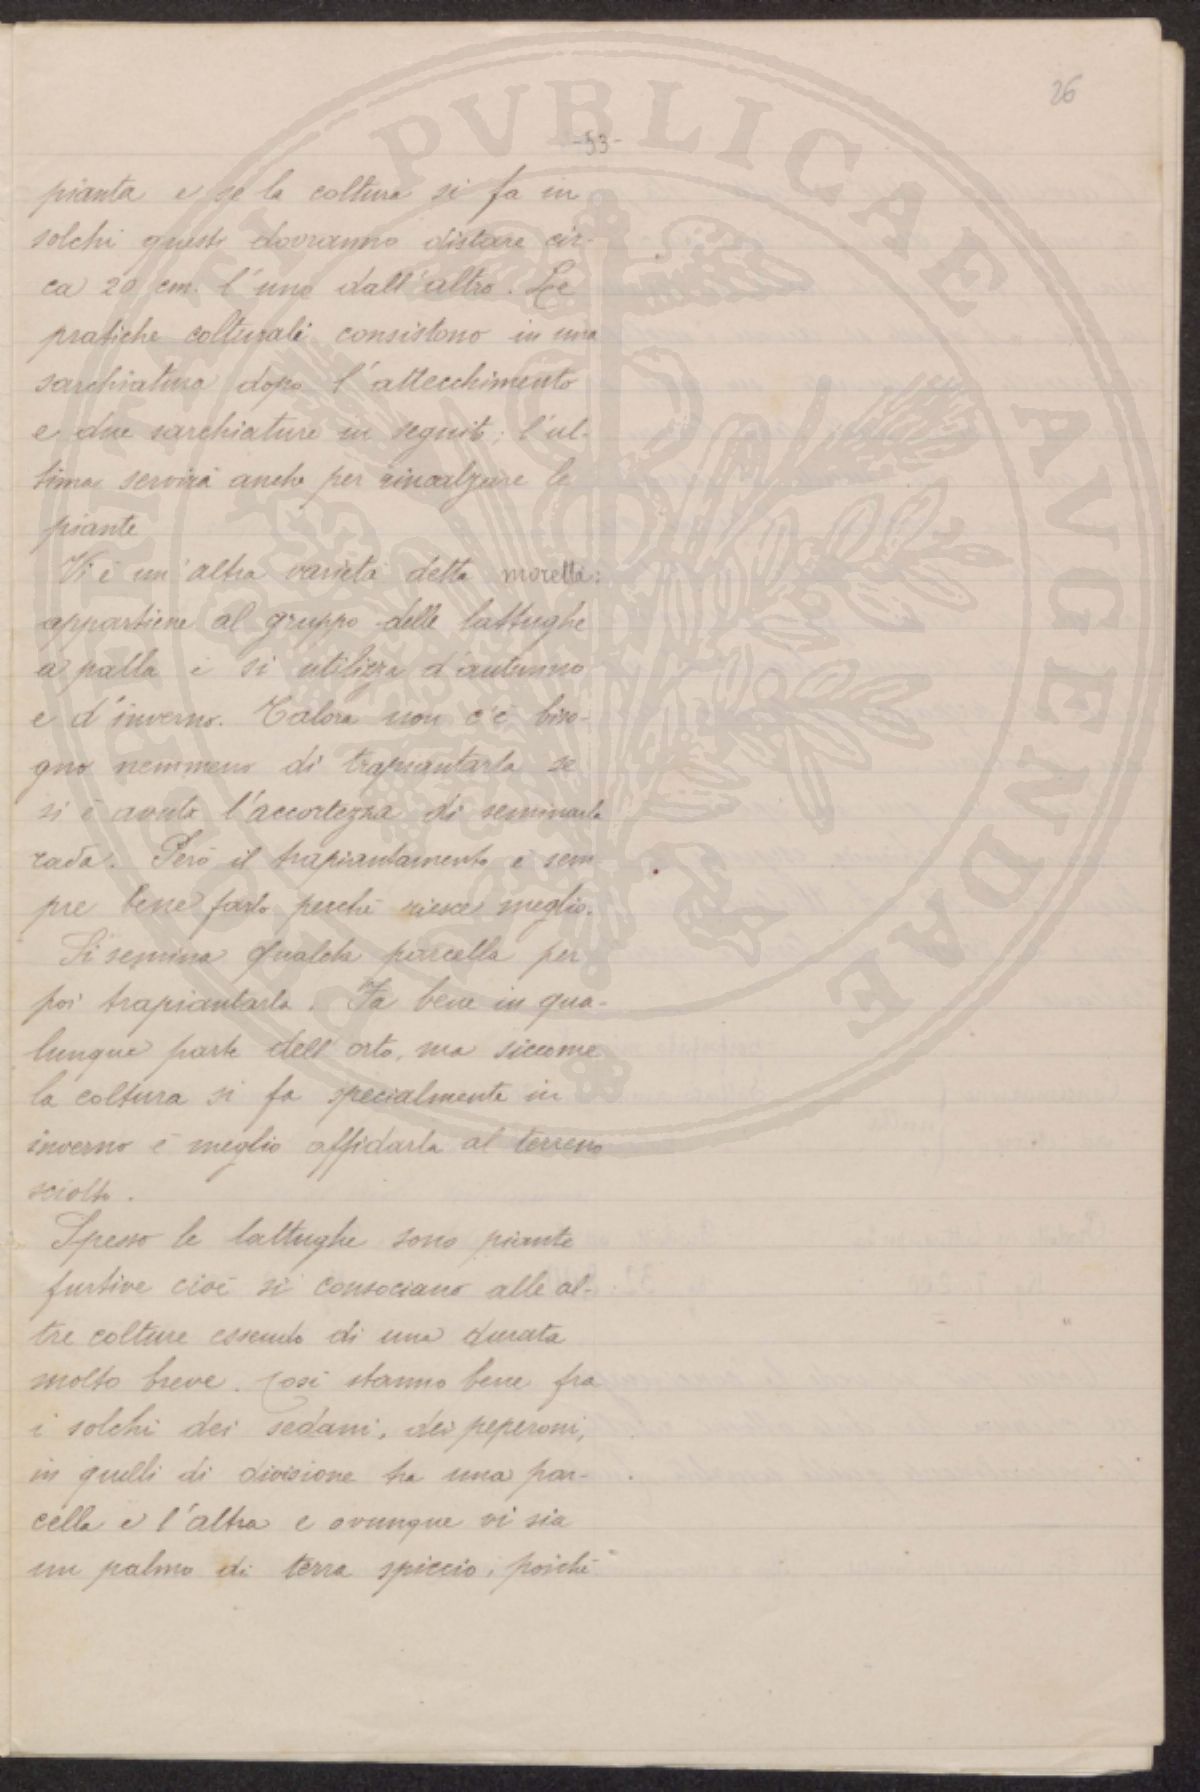 26
-53-
pianta e se la coltura si fa in
solchi questi dovranno distare cir-
ca 20 cm. l'uno dall'altro. Le
pratiche colturali consistono in una
sarchiatura dopo l'attecchimento
e due sarchiature in seguito; l'ul-
tima servirà anche per rincalzare le
piante
Vi è un'altra varietà detta moretta:
appartiene al gruppo delle lattughe
a palla e si utilizza d'autunno
e d'inverno. Talora non c'è biso-
gno nemmeno di trapiantarla se
si è avuta l'accortezza di seminarla
rada. Però il trapiantamento è sem
pre bene farlo perché riesce meglio.
Si semina qualche parcella per
poi trapiantarla. Fa bene in qua-
lunque parte dell'orto, ma siccome
la coltura si fa specialmente in
inverno è meglio affidarla al terreno
sciolto.
Spesso le lattughe sono piante
furtive cioè si consociano alle al-
tre colture essendo di una durata
molto breve. Così stanno bene fra
i solchi dei sedani, dei peperoni,
in quelli di divisione tra una par-
cella e l'altra e ovunque vi sia
un palmo di terra spiccio, poiché
PVBLICAE AVGENDAE